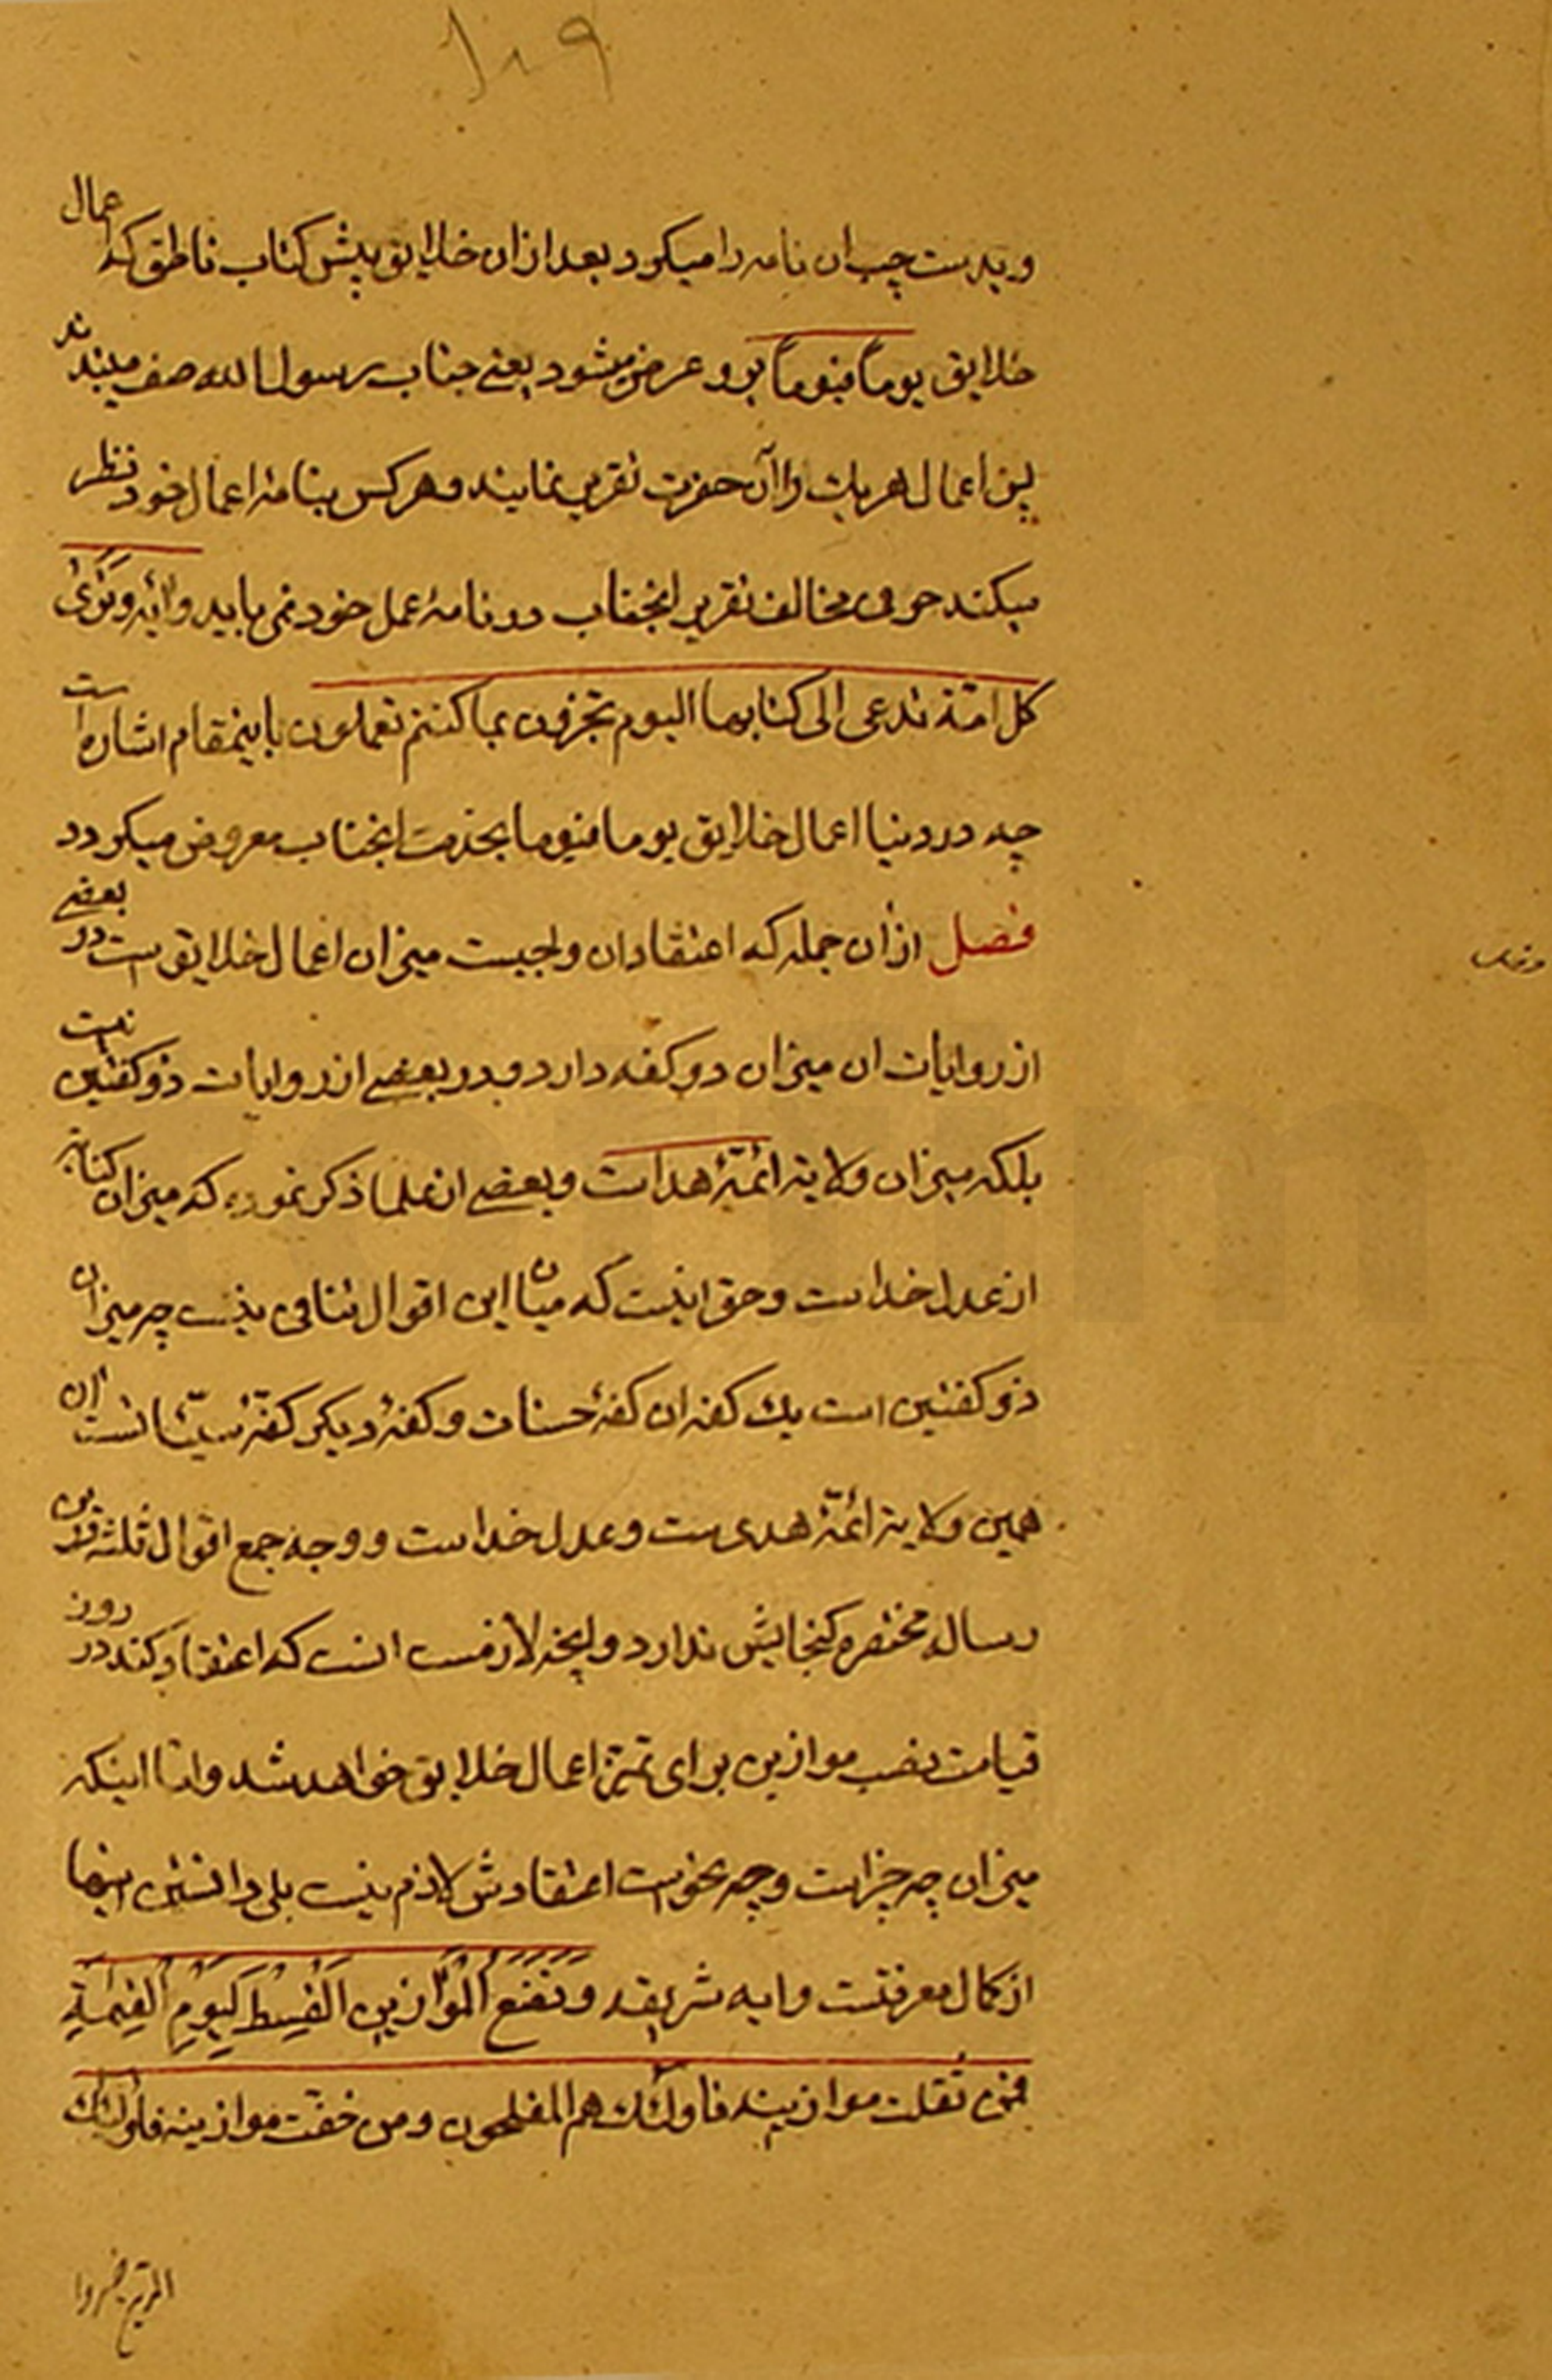 ۱۰۹
و بدست چپ ان نامه را میکرد بعد ازان خلایق پیش کتاب ناطق که اعمال
خلایق یوماً فیوماً برو عرض میشود یعنی جناب رسول الله صف میبندند
پس اعمال هر یک را آن حضرت تقریر نمایند و هر کس بنامهٔ اعمال خود نظر
میکند حرفی مخالف تقریر انجناب در نامهٔ عمل خود نمی یابد و آیه و تری
کل امة تدعی الی کتابها الیوم تجزون بما کنتم تعملون باینمقام اشاره است
چه در دنیا اعمال خلایق یوما فیوما بخدمت انجناب معروض میکردد
فصل ازان جمله که اعتقاد ان واجبست میزان اعمال خلایق است در بعضی
از روایات ان میزان دو کفه دارد و در بعضی از روایات ذو کفتین نیست
بلکه میزان ولایة ائمّهٔ هداست و بعضی از علما ذکر نموده که میزان کنایه
از عدل خداست و حق اینست که میان این اقوال تنافی نیست چه میزان
ذو کفتین است یک کفه ان کفهٔ حسنات و کفهٔ دیکر کفهٔ سیّئاتست ان
همین ولایة ائمّهٔ هدی ست و عدل خداست و وجه جمع اقوال ثلثه در این
رساله مختصره کنجایش ندارد و انچه لازمست انست که اعتقاد کند در روز
قیامت نصب موازین برای تمیز اعمال خلایق خواهد شد و امّا اینکه
میزان چه چیز است و چه نحو است اعتقادش لازم نیست بلی دانستن اینها
از کمال معرفتست و ایه شریفه وَنَضَعُ الْمَوَازِینَ الْقِسْطَ لِیَوْمِ الْقِیٰمَةِ
فمن ثقلت موازینه فاولئک هم المفلحون و من خفّت موازینه فاولئک
الذین خسروا